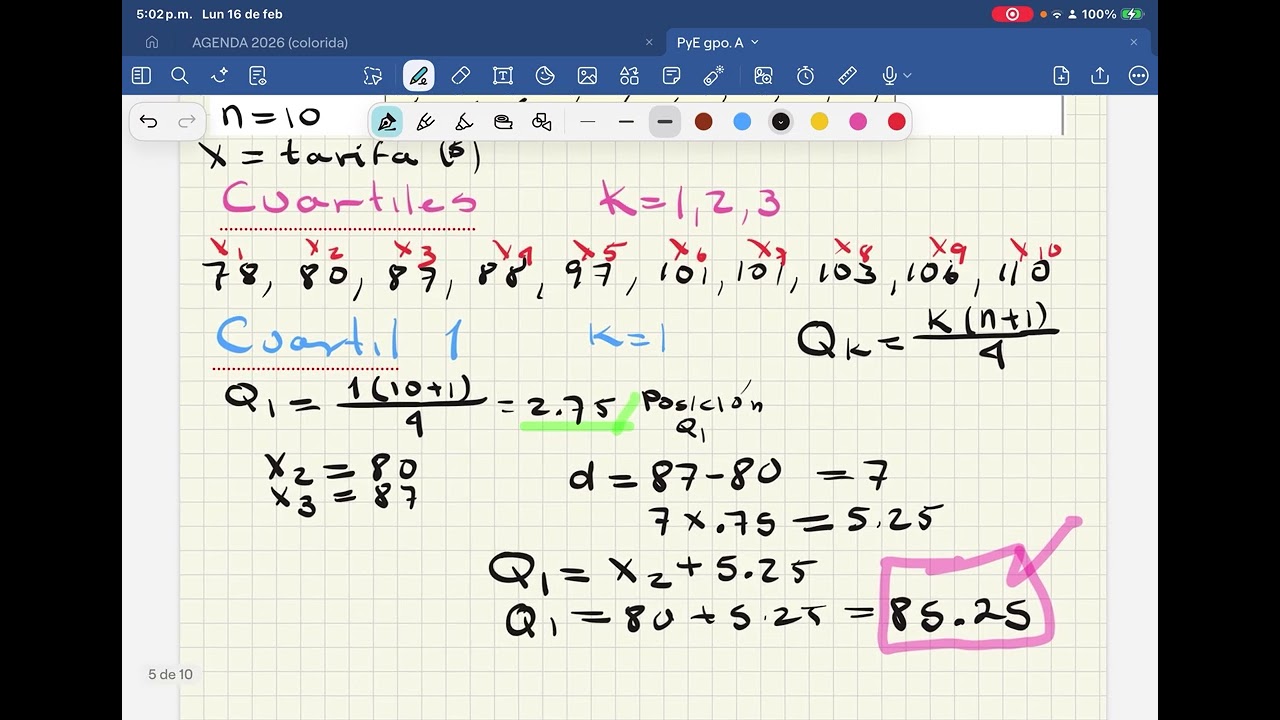 5:02 p.m. Lun 16 de feb
100%
AGENDA 2026 (colorida)
PyE gpo. A
n = 10
X = tarifa ($)
Cuartiles K = 1, 2, 3
X1 X2 X3 X4 X5 X6 X7 X8 X9 X10
78, 80, 87, 88, 97, 101, 101, 103, 106, 110
Cuartil 1 K = 1 QK = K(n+1)/4
Q1 = 1(10+1)/4 = 2.75 Posición Q1
X2 = 80
X3 = 87
d = 87 - 80 = 7
7 x .75 = 5.25
Q1 = X2 + 5.25
Q1 = 80 + 5.25 = 85.25
5 de 10